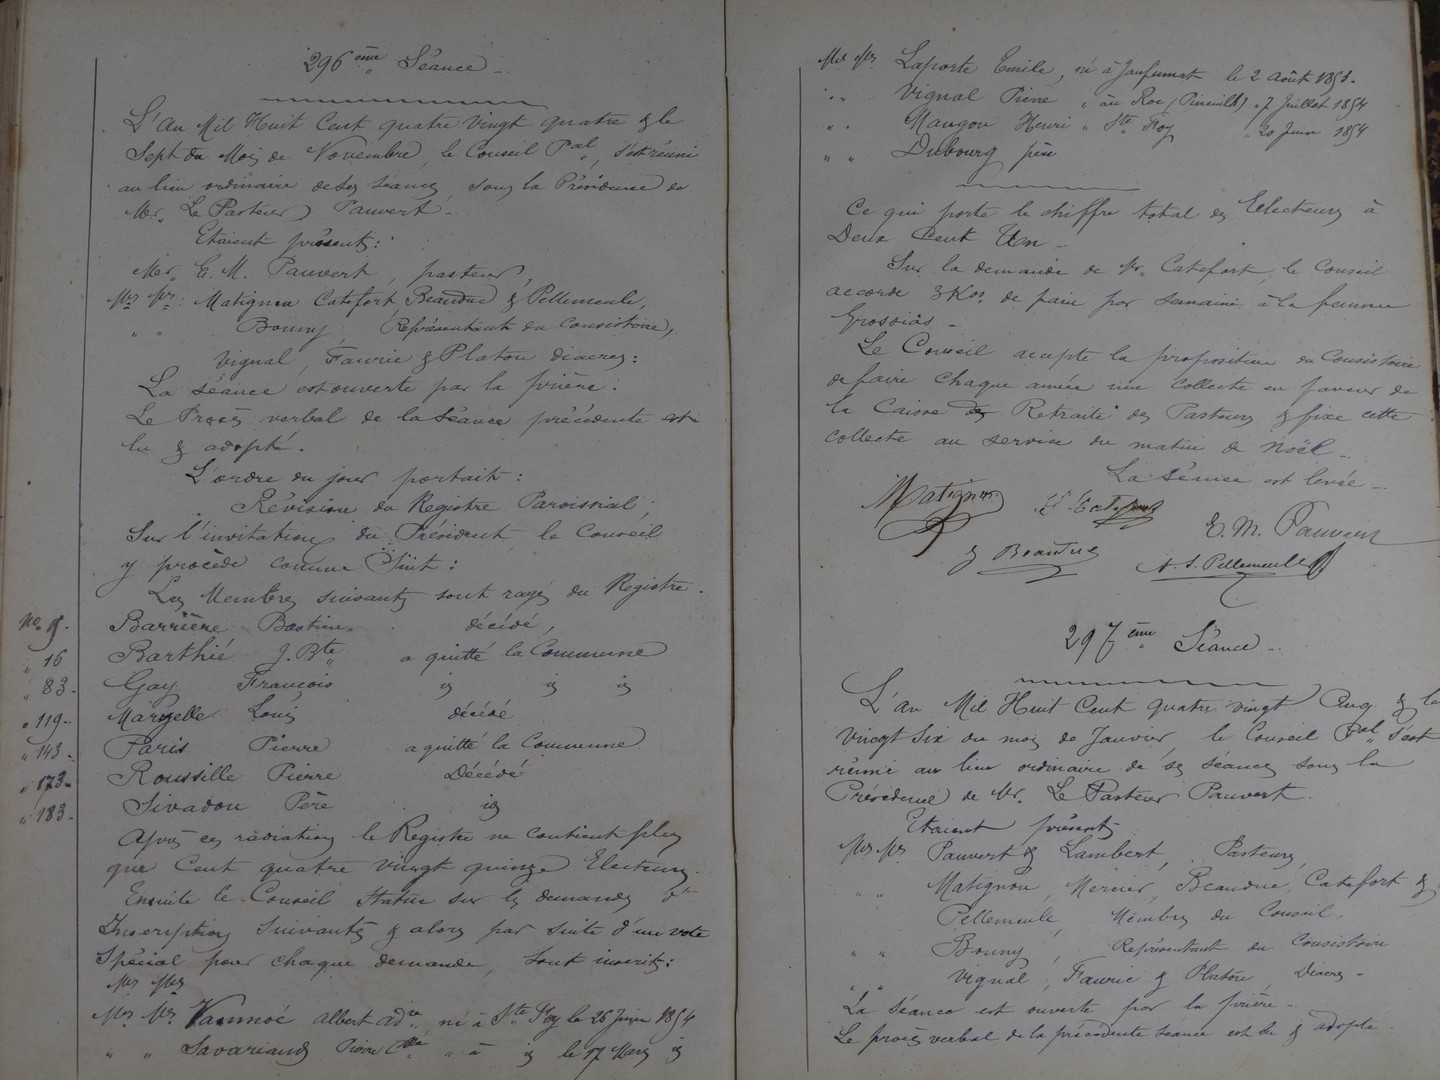 296 ème Séance
L'An Mil Huit Cent quatre Vingt quatre & le
Sept du Mois de Novembre, le Conseil Pal, s'est réuni
au lieu ordinaire de ses séances, sous la Présidence de
Mr. Le Pasteur Pauvert.
Etaient présents:
Mr. E. M. Pauvert, pasteur,
Mrs Mrs: Matignon Catefort, Beauduc & Pellemeule,
" " Bonny, Représentant du Consistoire,
Vignal, Faurie & Platon diacres:
La séance est ouverte par la prière.
Le Procès verbal de la séance précédente est
lu & adopté.
L'ordre du jour portait:
Révision du Registre Paroissial;
Sur l'invitation du Président, le Conseil
y procède comme Suit:
Les Membres suivants sont rayés du Registre.
No. 9. Barrière Bastien décédé,
" 16 Barthié J. Bte a quitté la Commune
" 83 Gay François id id id
" 119 Louis décédé
" 143 Paris Pierre a quitté la Commune
" 173 Roussille Pierre Décédé
" 183 Sivadon Père id
Après ces radiation le Registre ne contient plus
que Cent quatre vingt quinze Electeurs.
Ensuite le Conseil Statue sur les demandes d'
Inscriptions Suivantes & alors par suite d'un vote
Spécial pour chaque demande, Sont inscrits:
Mrs Mrs
Mrs Mrs Albert né à Ste Foy le 26 Juin 1854
" " Savariaud Pierre " à id le 17 Mars id
Mrs Mrs Laporte Emile, né à le 2 Août 1851.
" " Vignal Pierre " au Roc (Pineuilh) " 7 Juillet 1854
" " Maugou Henri " Ste Foy " 20 Juin 1854
" " Dubourg père
Ce qui porte le chiffre total des Electeurs à
Deux Cent Un
Sur la demande de Mr. Catefort, le Conseil
accorde 3 Kos de pain par semaine à la femme
Grossias
Le Conseil accepte la proposition du Consistoire
de faire chaque année une collecte en faveur de
la Caisse des Retraite des Pasteurs & fixe cette
collecte au service du matin de Noël
La Séance est levée
Matignon
E. M. Pauvert
Beauduc
Pellemeule
297 ème Séance
L'an Mil Huit Cent quatre vingt Cinq & le
Vingt Six du mois de Janvier le Conseil Pal s'est
réuni au lieu ordinaire de ses séances sous la
Présidence de Mr. Le Pasteur Pauvert.
Etaient présents
Mrs Mrs Pauvert & Lambert, Pasteurs,
" " Matignon, Mercier, Beauduc, Catefort &
Pellemeule, Membres du Conseil,
" " Bonny, Représentant du Consistoire
" " Vignal, Faurie & Platon Diacres
La séance est ouverte par la prière
Le procès verbal de la précédente séance est lu & adopté.